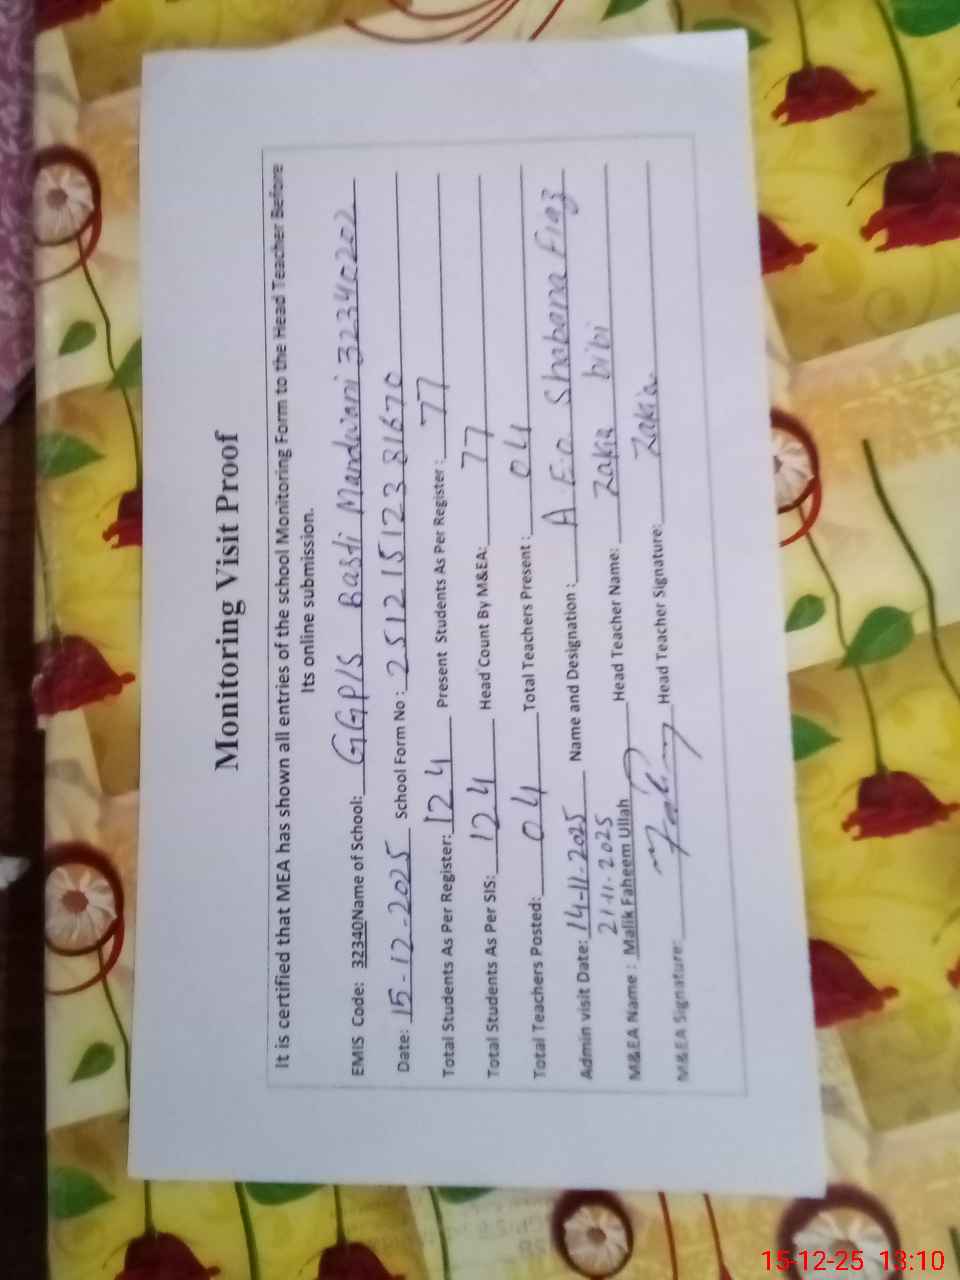 Monitoring Visit Proof
It is certified that MEA has shown all entries of the school Monitoring Form to the Head Teacher Before
Its online submission.
EMIS Code: 32340Name of School: GGP/S Basti Mandwani 32340202
Date: 15-12-2025 School Form No: 25121512381670
Total Students As Per Register: 124 Present Students As Per Register: 77
Total Students As Per SIS: 124 Head Count By M&EA: 77
Total Teachers Posted: 04 Total Teachers Present: 04
Admin visit Date: 14-11-2025 Name and Designation: A.E.o Shabana Fiaz
21-11-2025
M&EA Name : Malik Faheem Ullah Head Teacher Name: Zakia bibi
M&EA Signature: Head Teacher Signature: Zakia
15-12-25 13:10